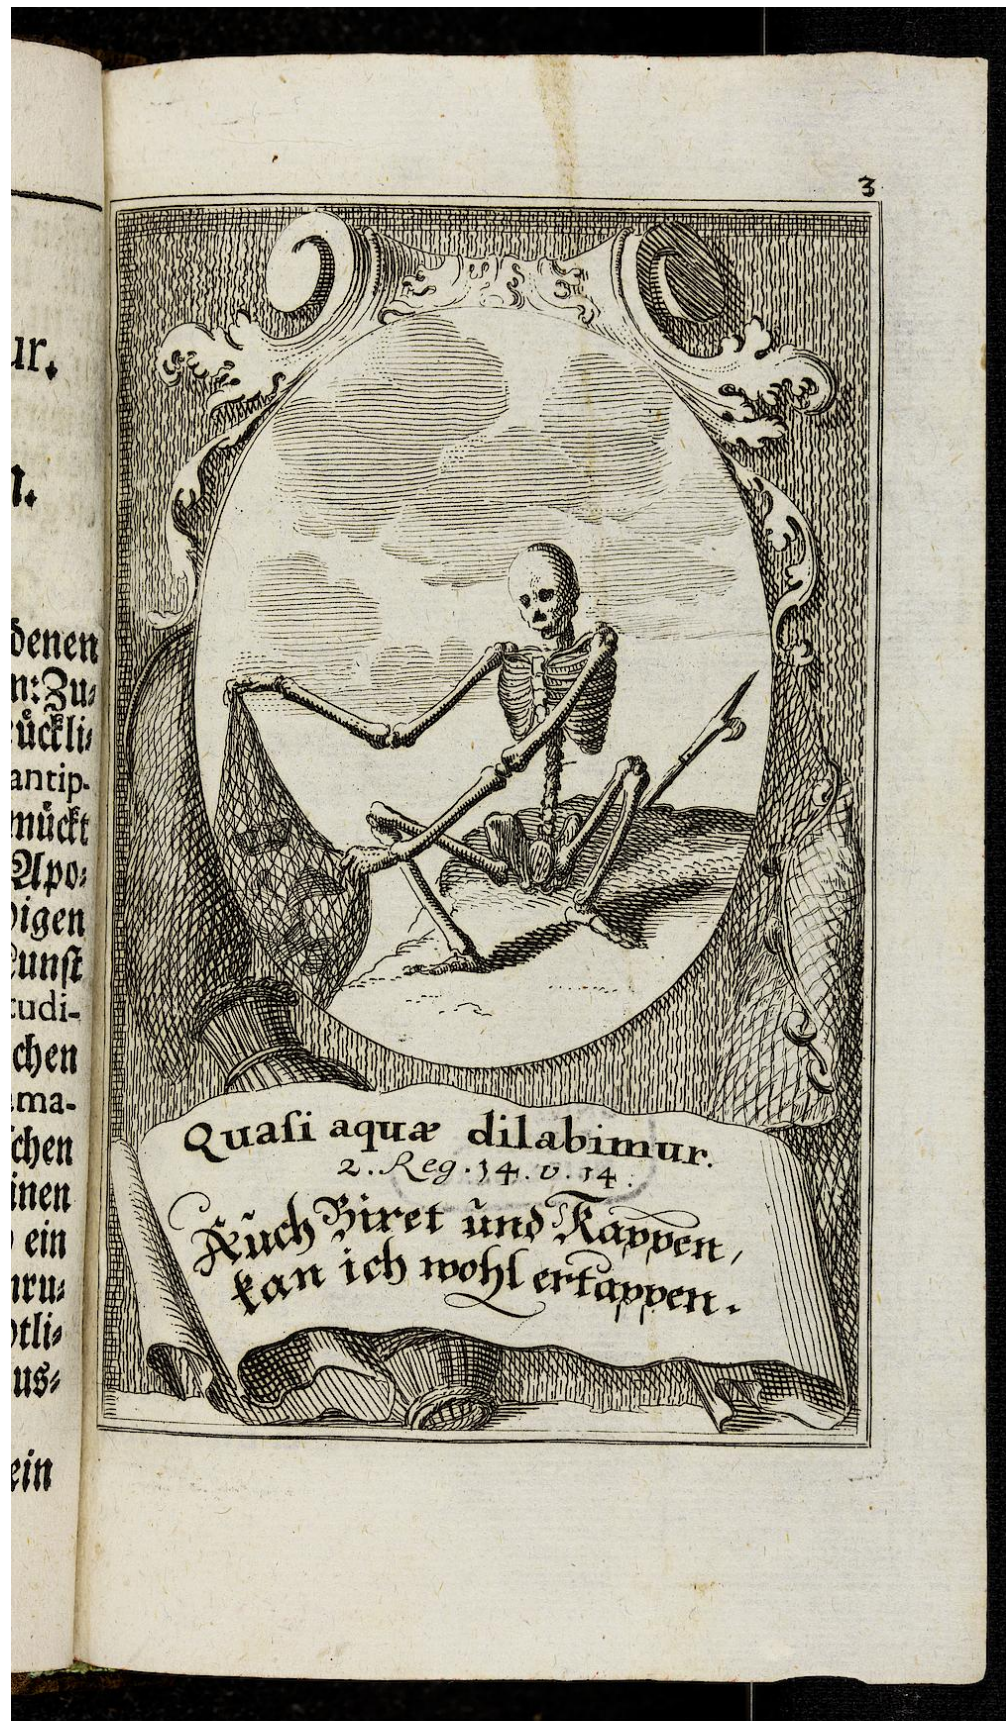 ur.
n.
denen
n: Zu⸗
ückli⸗
antip-
mückt
Apo⸗
digen
Kunst
tudi-
chen
ma-
schen
inen
ein
nru⸗
tli⸗
us⸗
ein
3
Quaſi aquæ dilabimur.
2. Reg. 14. v. 14.
Auch Biret und Kappen,
kan ich wohl ertappen.